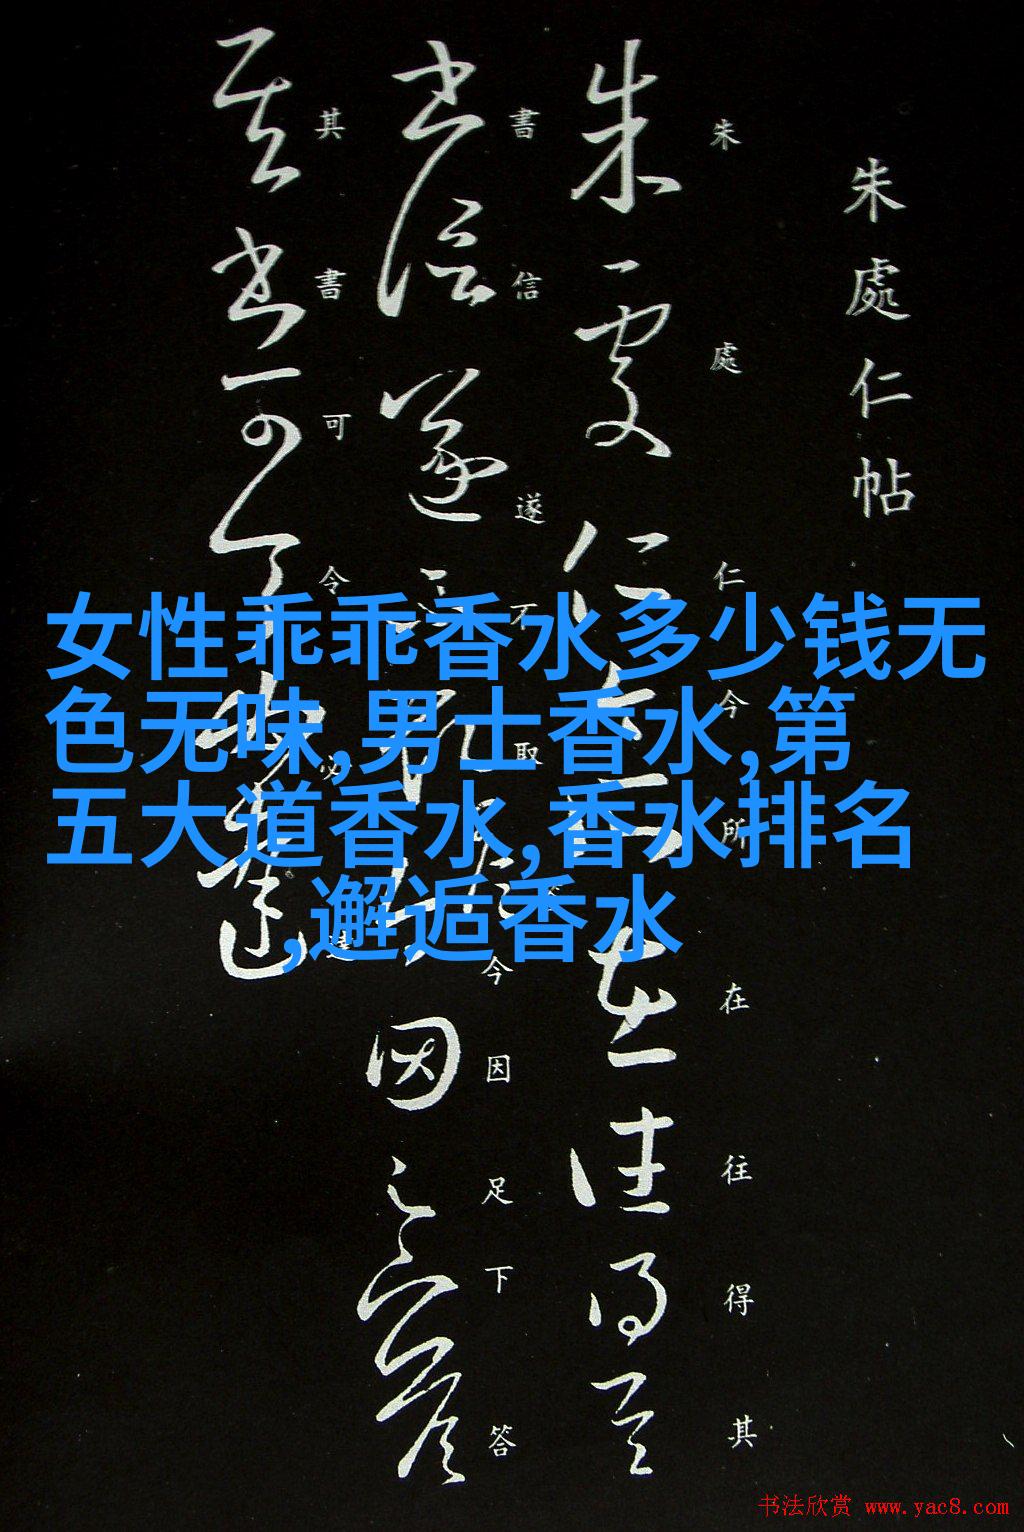 朱處仁帖
朱處仁今所在往得其
書信遂不取今因足下答
其書可令必達
女性乖乖香水多少钱无
色无味,男士香水,第
五大道香水,香水排名
,邂逅香水
书法欣赏 www.yac8.com